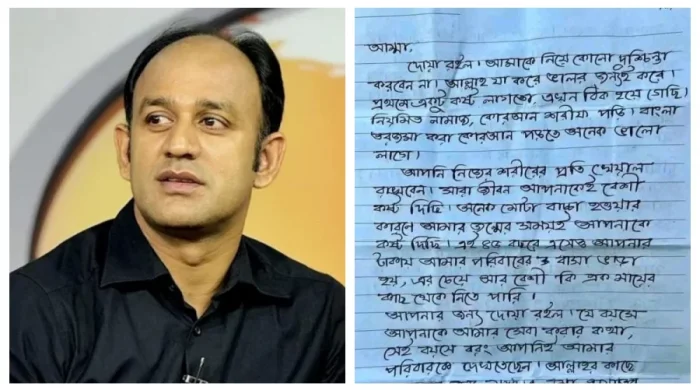 আম্মা,
দোয়া রইল। আমাকে নিয়ে কোনো দুশ্চিন্তা
করবেন না। আল্লাহ যা করে ভালোর জন্যই করে।
প্রথমে একটু কষ্ট লাগতো, এখন ঠিক হয়ে গেছি।
নিয়মিত নামাজ, কোরআন শরীফ পড়ি। বাংলা
তরজমা করা কোরআন পড়তে অনেক ভালো
লাগে।
আপনি নিজের শরীরের প্রতি খেয়াল
রাখবেন। সারা জীবন আপনাকেই বেশী
কষ্ট দিছি। অনেক মোটা বাচ্চা হওয়ার
কারনে আমার জন্মের সময়ই আপনাকে
কষ্ট দিছি। এই ৪৫ বছরে এসেও আপনার
টাকায় আমার পরিবারের ও বাসা ভাড়া
হয়, এর চেয়ে আর বেশী কি এক মায়ের
কাছ থেকে নিতে পারি।
আপনার জন্য দোয়া রইল। যে বয়সে
আপনাকে আমার সেবা করার কথা,
সেই বয়সে বরং আপনিই আমার
পরিবারকে দেখতেছেন। আল্লাহর কাছে